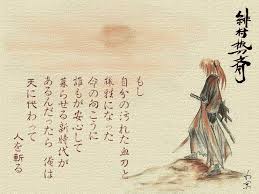 緋村剣心
もし
自分の汚れた血刃と
犠牲になった
命の向こうに
誰もが安心して
暮らせる新時代が
あるんだったら俺は
天に代わって
人を斬る